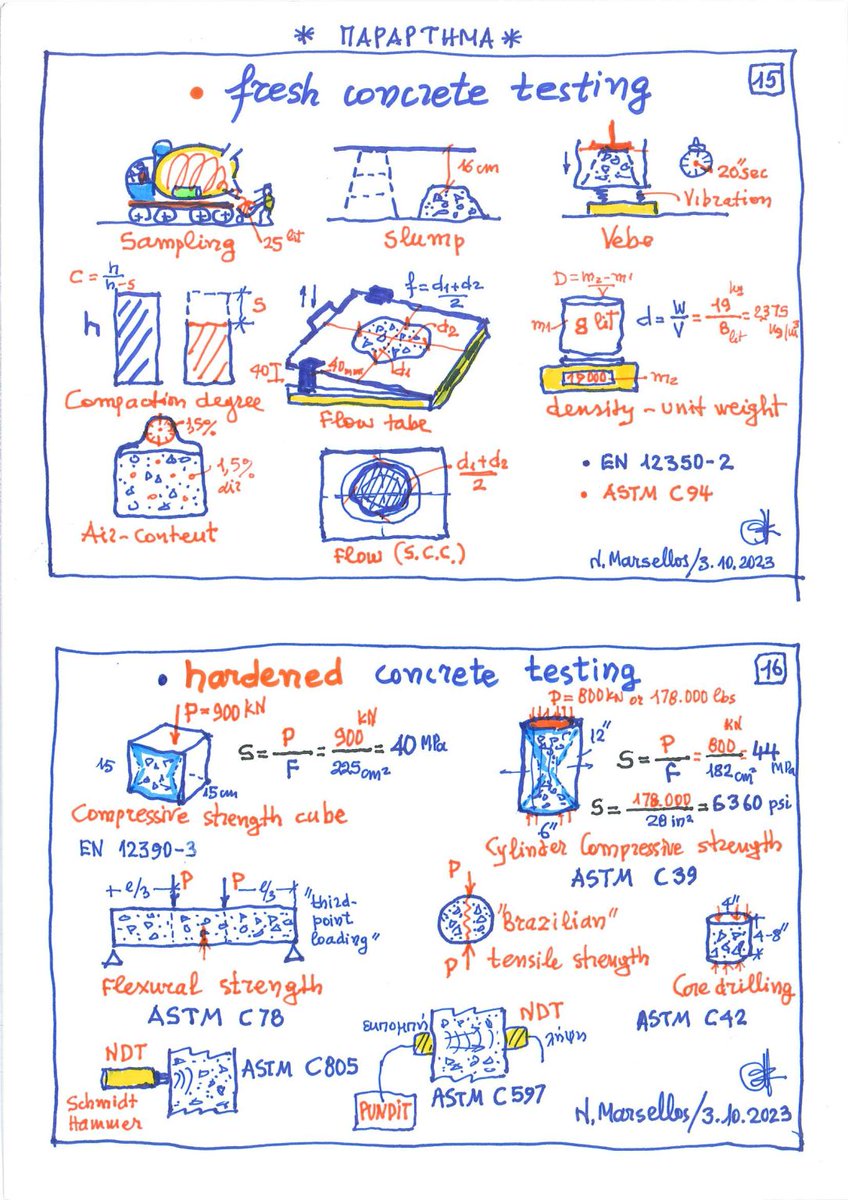 * ΠΑΡΑΡΤΗΜΑ *
15
• fresh concrete testing
Sampling
25 lit
16 cm
Slump
20" sec
Vibration
Vebe
C = h/h-s
h
S
Compaction degree
f = d1+d2/2
d2
d1
40
40mm
Flow tabe
D = m2-m1/V
m1
8 lit
d = W/V = 19 kg/8 lit = 2375 kg/m³
19000
m2
density - unit weight
1,5%
1,5% air
Air-Content
d1+d2/2
Flow (S.C.C.)
• EN 12350-2
• ASTM C94
N. Marsellos/3.10.2023
16
• hardened concrete testing
P=900 kN
15
15cm
S = P/F = 900 kN/225 cm² = 40 MPa
Compressive strength cube
EN 12390-3
P=800kN or 178.000 lbs
12"
6"
S = P/F = 800 kN/182 cm² = 44 MPa
S = 178.000/28 in² = 6360 psi
Cylinder Compressive strength
ASTM C39
ℓ/3 P P ℓ/3
"third-
point
loading"
Flexural strength
ASTM C78
P
P
"Brazilian"
tensile strength
4"
4-8"
Core drilling
ASTM C42
NDT
Schmidt
Hammer
ASTM C805
εκπομπή
NDT
λήψη
PUNDIT
ASTM C597
N. Marsellos/3.10.2023